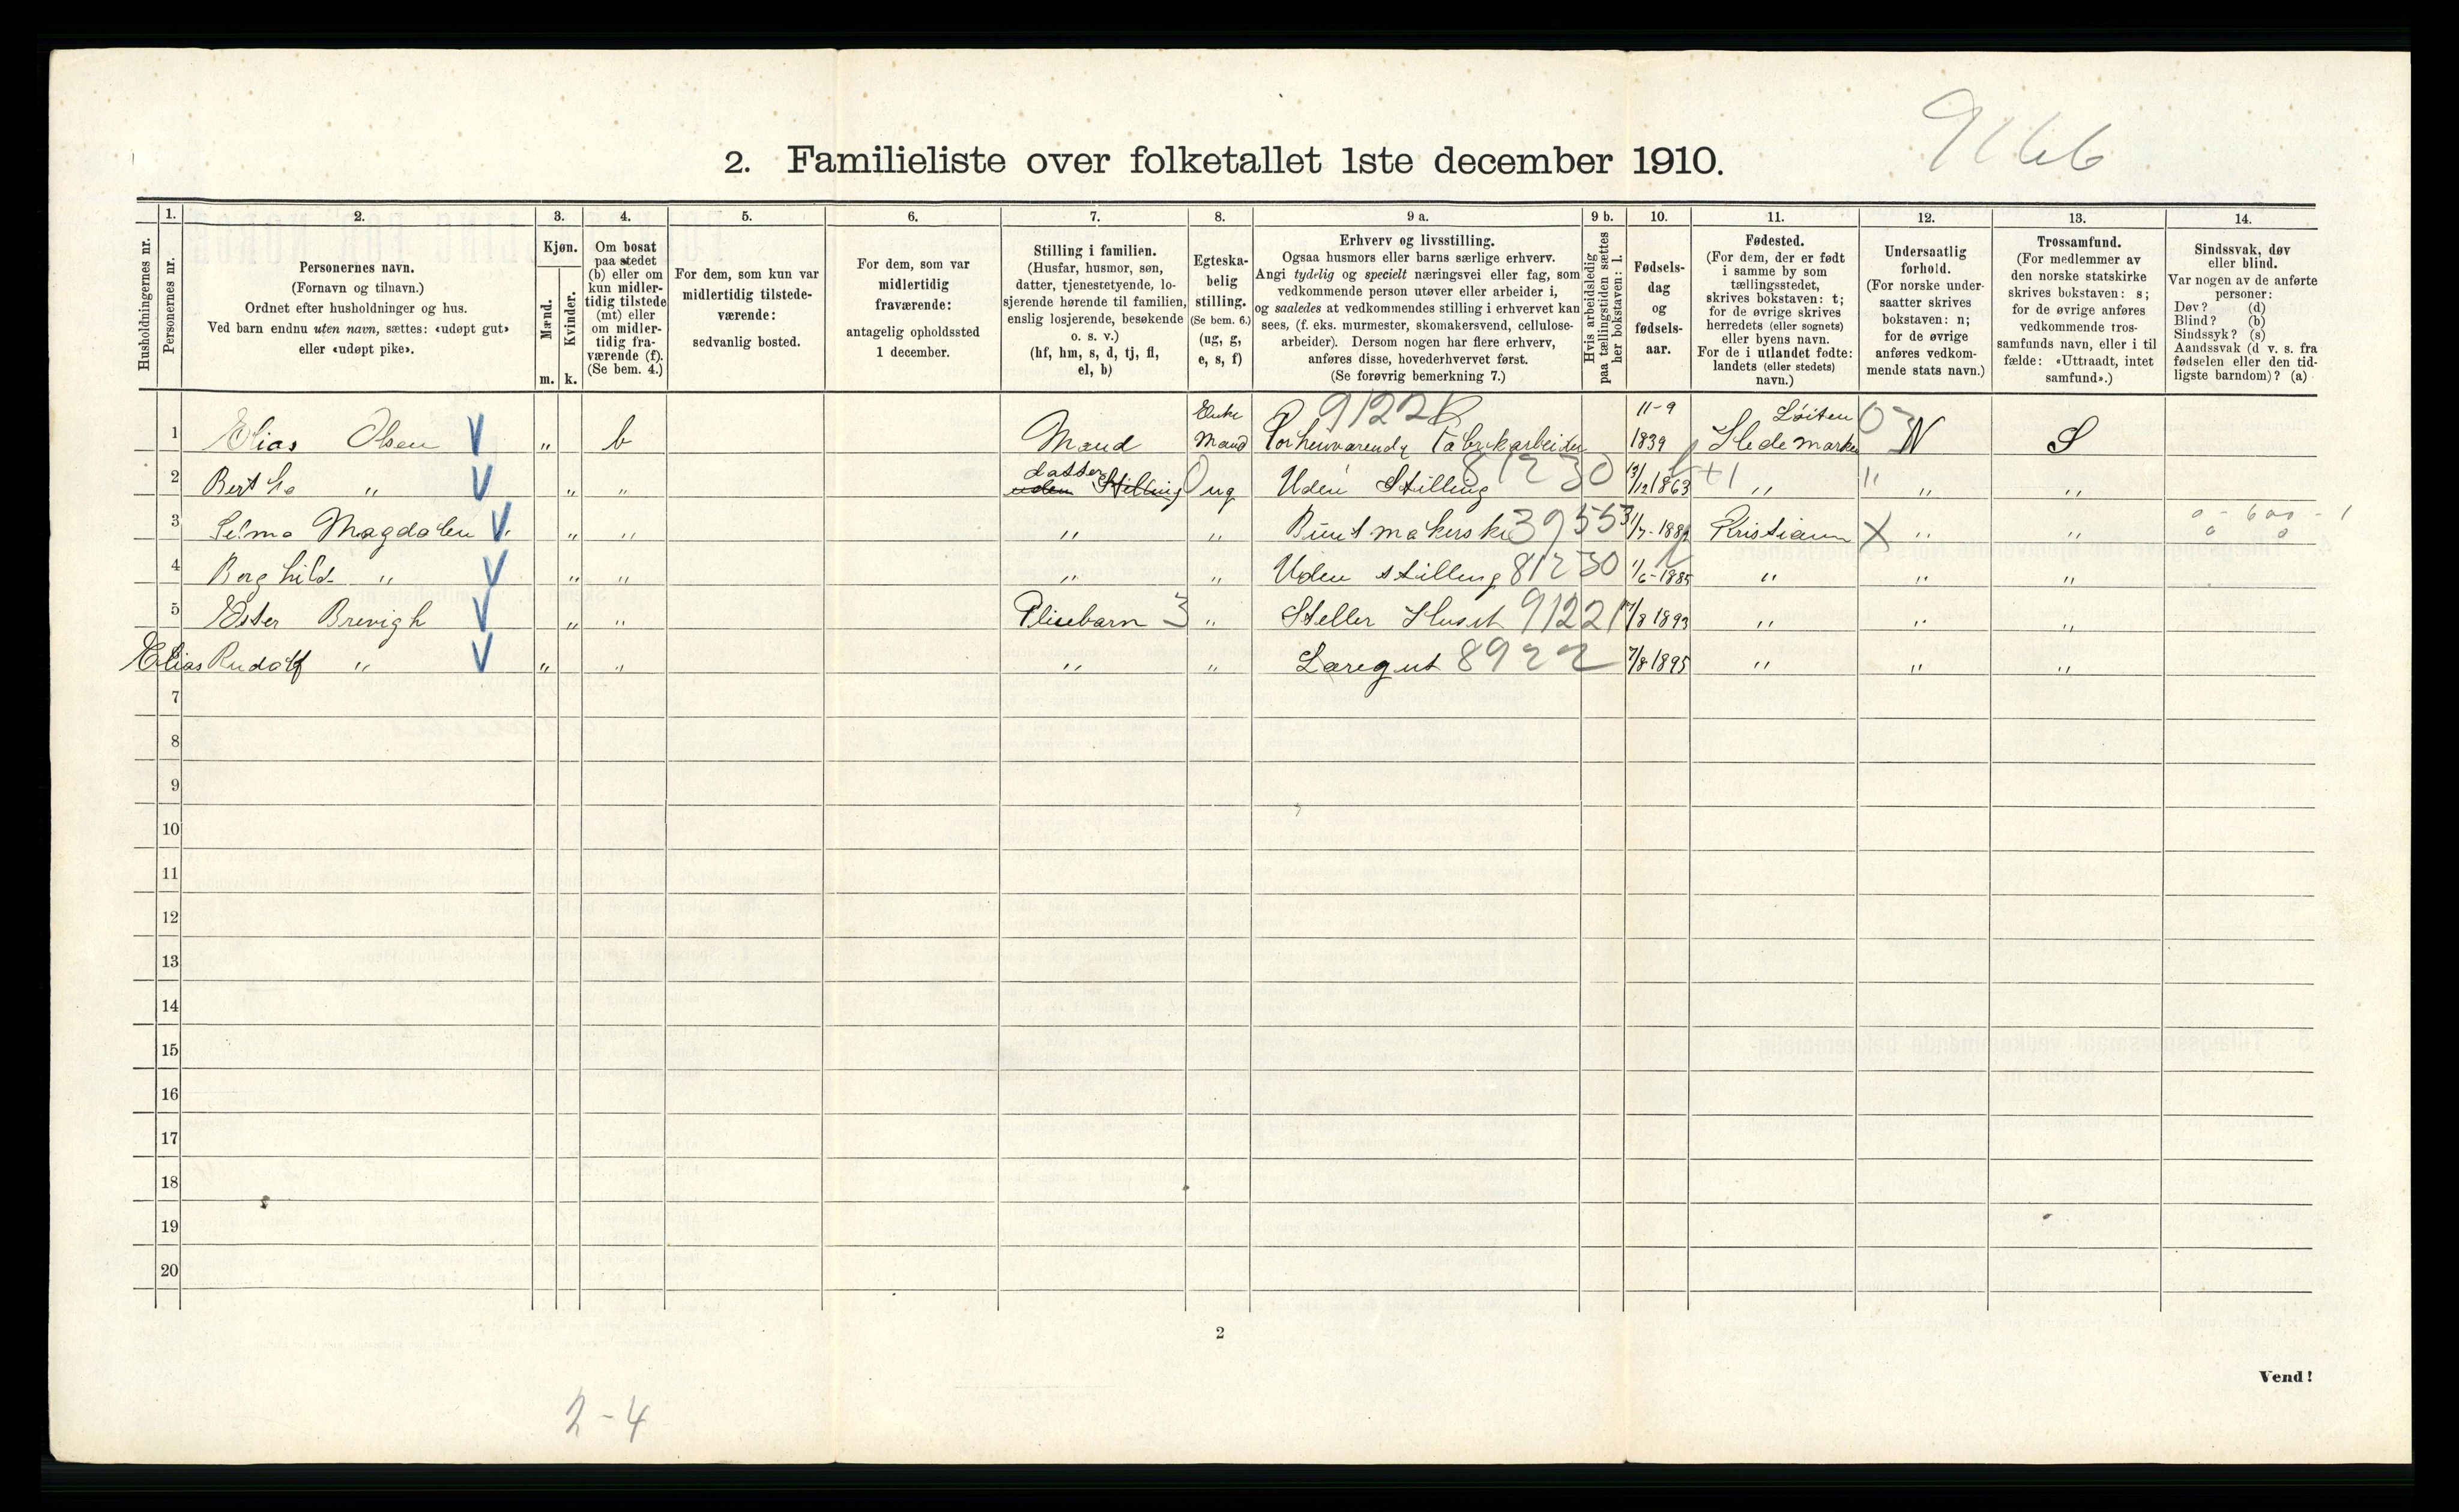 9166
2. Familieliste over folketallet 1ste december 1910.
Husholdningernes nr.
1.
Personernes nr.
2.
Personernes navn.
(Fornavn og tilnavn.)
Ordnet efter husholdninger og hus.
Ved barn endnu uten navn, sættes: «udøpt gut»
eller «udøpt pike».
3.
Kjøn.
Mænd.
Kvinder.
m. k.
4.
Om bosat
paa stedet
(b) eller om
kun midler-
tidig tilstede
(mt) eller
om midler-
tidig fra-
værende (f).
(Se bem. 4.)
5.
For dem, som kun var
midlertidig tilstede-
værende:
sedvanlig bosted.
6.
For dem, som var
midlertidig
fraværende:
antagelig opholdssted
1 december.
7.
Stilling i familien.
(Husfar, husmor, søn,
datter, tjenestetyende, lo-
sjerende hørende til familien,
enslig losjerende, besøkende
o. s. v.)
(hf, hm, s, d, tj, fl,
el, b)
8.
Egteska-
belig
stilling.
(Se bem. 6.)
(ug, g,
e, s, f)
9 a.
Erhverv og livsstilling.
Ogsaa husmors eller barns særlige erhverv.
Angi tydelig og specielt næringsvei eller fag, som
vedkommende person utøver eller arbeider i,
og saaledes at vedkommendes stilling i erhvervet kan
sees, (f. eks. murmester, skomakersvend, cellulose-
arbeider). Dersom nogen har flere erhverv,
anføres disse, hovederhvervet først.
(Se forøvrig bemerkning 7.)
9 b.
Hvis arbeidsledig
paa tællingstiden sættes
her bokstaven: l.
10.
Fødsels-
dag
og
fødsels-
aar.
11.
Fødested.
(For dem, der er født
i samme by som
tællingsstedet,
skrives bokstaven: t;
for de øvrige skrives
herredets (eller sognets)
eller byens navn.
For de i utlandet fødte:
landets (eller stedets)
navn.)
12.
Undersaatlig
forhold.
(For norske under-
saatter skrives
bokstaven: n;
for de øvrige
anføres vedkom-
mende stats navn.)
13.
Trossamfund.
(For medlemmer av
den norske statskirke
skrives bokstaven: s;
for de øvrige anføres
vedkommende tros-
samfunds navn, eller i til
fælde: «Uttraadt, intet
samfund».)
14.
Sindssvak, døv
eller blind.
Var nogen av de anførte
personer:
Døv? (d)
Blind? (b)
Sindssyk? (s)
Aandssvak (d v. s. fra
fødselen eller den tid-
ligste barndom)? (a)
Enke 9122 11-9 Løiten
1 Elias Olsen V " b Mand Mand Forhenværende Fabrikarbeider 1839 Hedemarken N S
datter
2 Bertha " V " " uden Stilling ug Uden Stilling 81230 13/12 1863 +1 " " "
3 Selma Magdalen V " " " " Buntmakerske 3955 31/7-188 Kristiania X " "
4 Borghild " V " " " " Uden stilling 81230 1/6-1885 " " "
5 Ester Brevigh V " " Pliebarn " Steller Huset 91221 17/8 1893 " " "
Elias Rudolf " V " " " " Læregut 8922 7/8 1895 " " "
7
8
9
10
11
12
13
14
15
16
17
18
19
20
2
Vend!
2-4